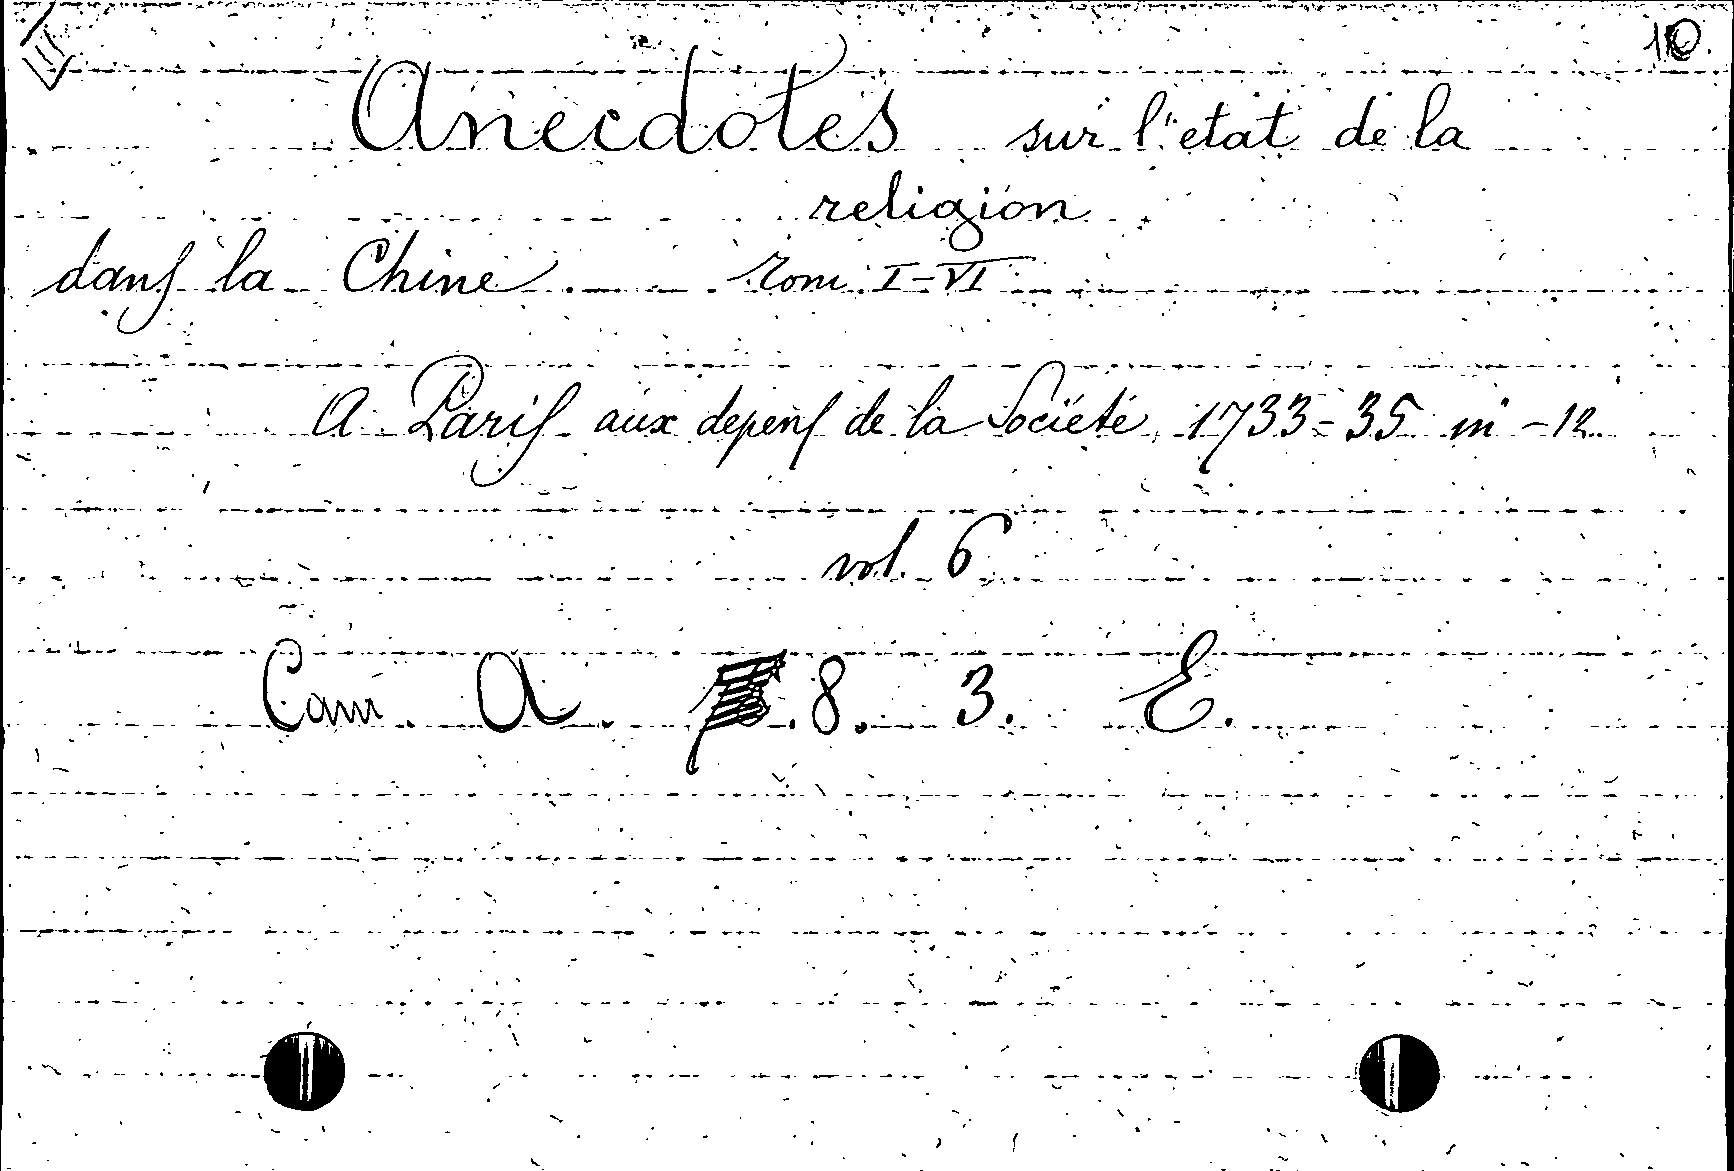 10.
Anecdotes sur l'etat de la
religion
dans la Chine. Tom. I-VI
A Paris aux depens de la Societé, 1733-35 in -12.
vol. 6
Cam. A. 8. 3. E.